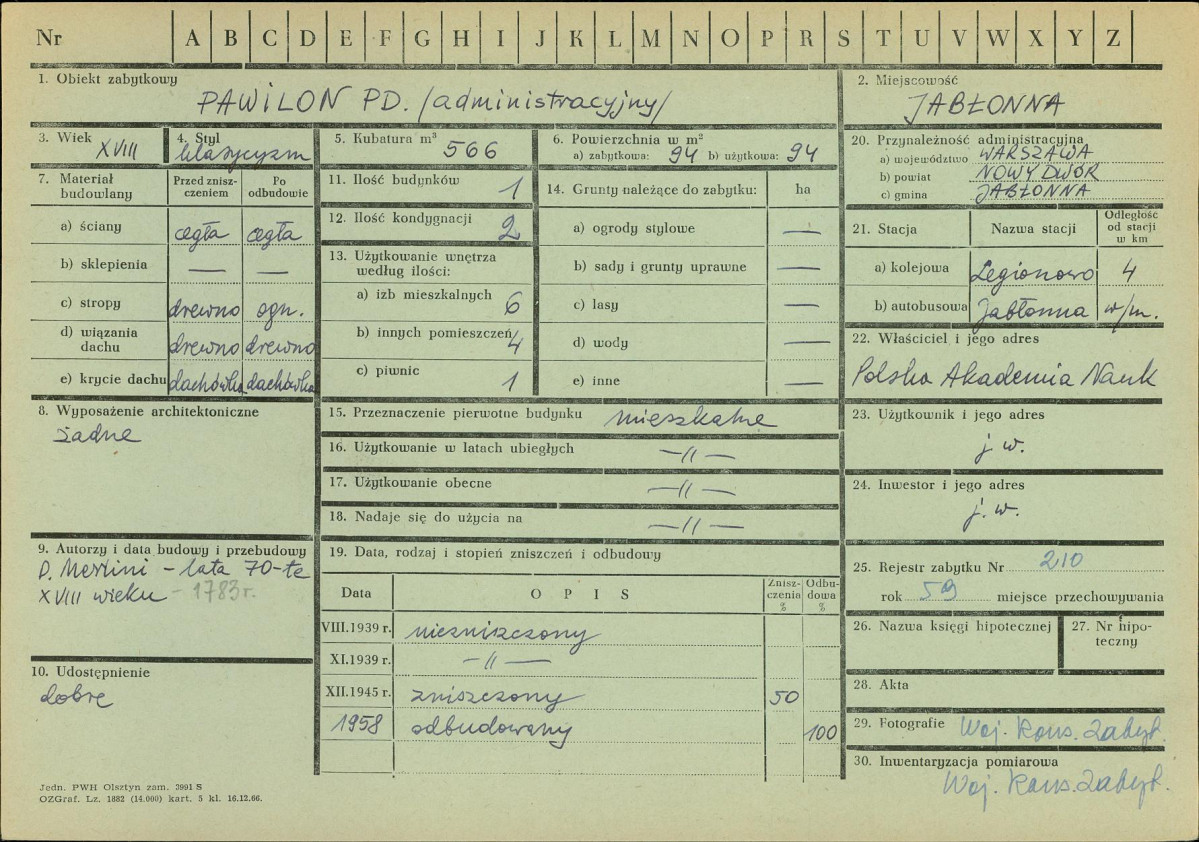 Nr A B C D E F G H I J K L M N O P R S T U V W X Y Z
1. Obiekt zabytkowy
PAWILON PD. /administracyjny/
2. Miejscowość
JABŁONNA
3. Wiek XVIII
4. Styl klasycyzm
5. Kubatura m³ 566
6. Powierzchnia w m²
a) zabytkowa: 94 b) użytkowa: 94
7. Materiał budowlany
Przed zniszczeniem
Po odbudowie
a) ściany cegła cegła
b) sklepienia — —
c) stropy drewno ogn.
d) wiązania dachu drewno drewno
e) krycie dachu dachówka dachówka
8. Wyposażenie architektoniczne
żadne
9. Autorzy i data budowy i przebudowy
D. Merlini - lata 70-te
XVIII wieku - 1783 r.
10. Udostępnienie
dobre
11. Ilość budynków 1
12. Ilość kondygnacji 2
13. Użytkowanie wnętrza
według ilości:
a) izb mieszkalnych 6
b) innych pomieszczeń 4
c) piwnic 1
14. Grunty należące do zabytku: ha
a) ogrody stylowe —
b) sady i grunty uprawne —
c) lasy —
d) wody —
e) inne —
15. Przeznaczenie pierwotne budynku mieszkalne
16. Użytkowanie w latach ubiegłych —//—
17. Użytkowanie obecne —//—
18. Nadaje się do użycia na —//—
19. Data, rodzaj i stopień zniszczeń i odbudowy
Data O P I S Zniszczenia % Odbudowa %
VIII.1939 r. niezniszczony
XI.1939 r. —//—
XII.1945 r. zniszczony 50
1958 odbudowany 100
20. Przynależność administracyjna
a) województwo WARSZAWA
b) powiat NOWY DWÓR
c) gmina JABŁONNA
21. Stacja Nazwa stacji Odległość od stacji w km
a) kolejowa Legionowo 4
b) autobusowa Jabłonna w/m.
22. Właściciel i jego adres
Polska Akademia Nauk
23. Użytkownik i jego adres
j. w.
24. Inwestor i jego adres
j. w.
25. Rejestr zabytku Nr 210
rok 59 miejsce przechowywania
26. Nazwa księgi hipotecznej
27. Nr hipoteczny
28. Akta
29. Fotografie Woj. Kons. Zabyt.
30. Inwentaryzacja pomiarowa
Woj. Kons. Zabyt.
Jedn. PWH Olsztyn zam. 3991 S
OZGraf. Lz. 1882 (14.000) kart. 5 kl. 16.12.66.